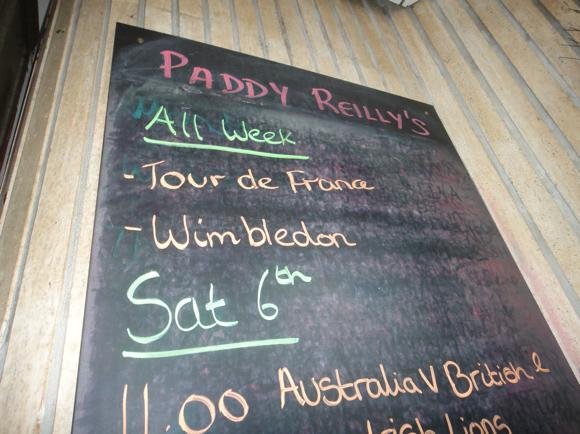 PADDY REILLY'S
All Week
- Tour de France
- Wimbledon
Sat 6th
11.00 Australia V British &
Irish Lions